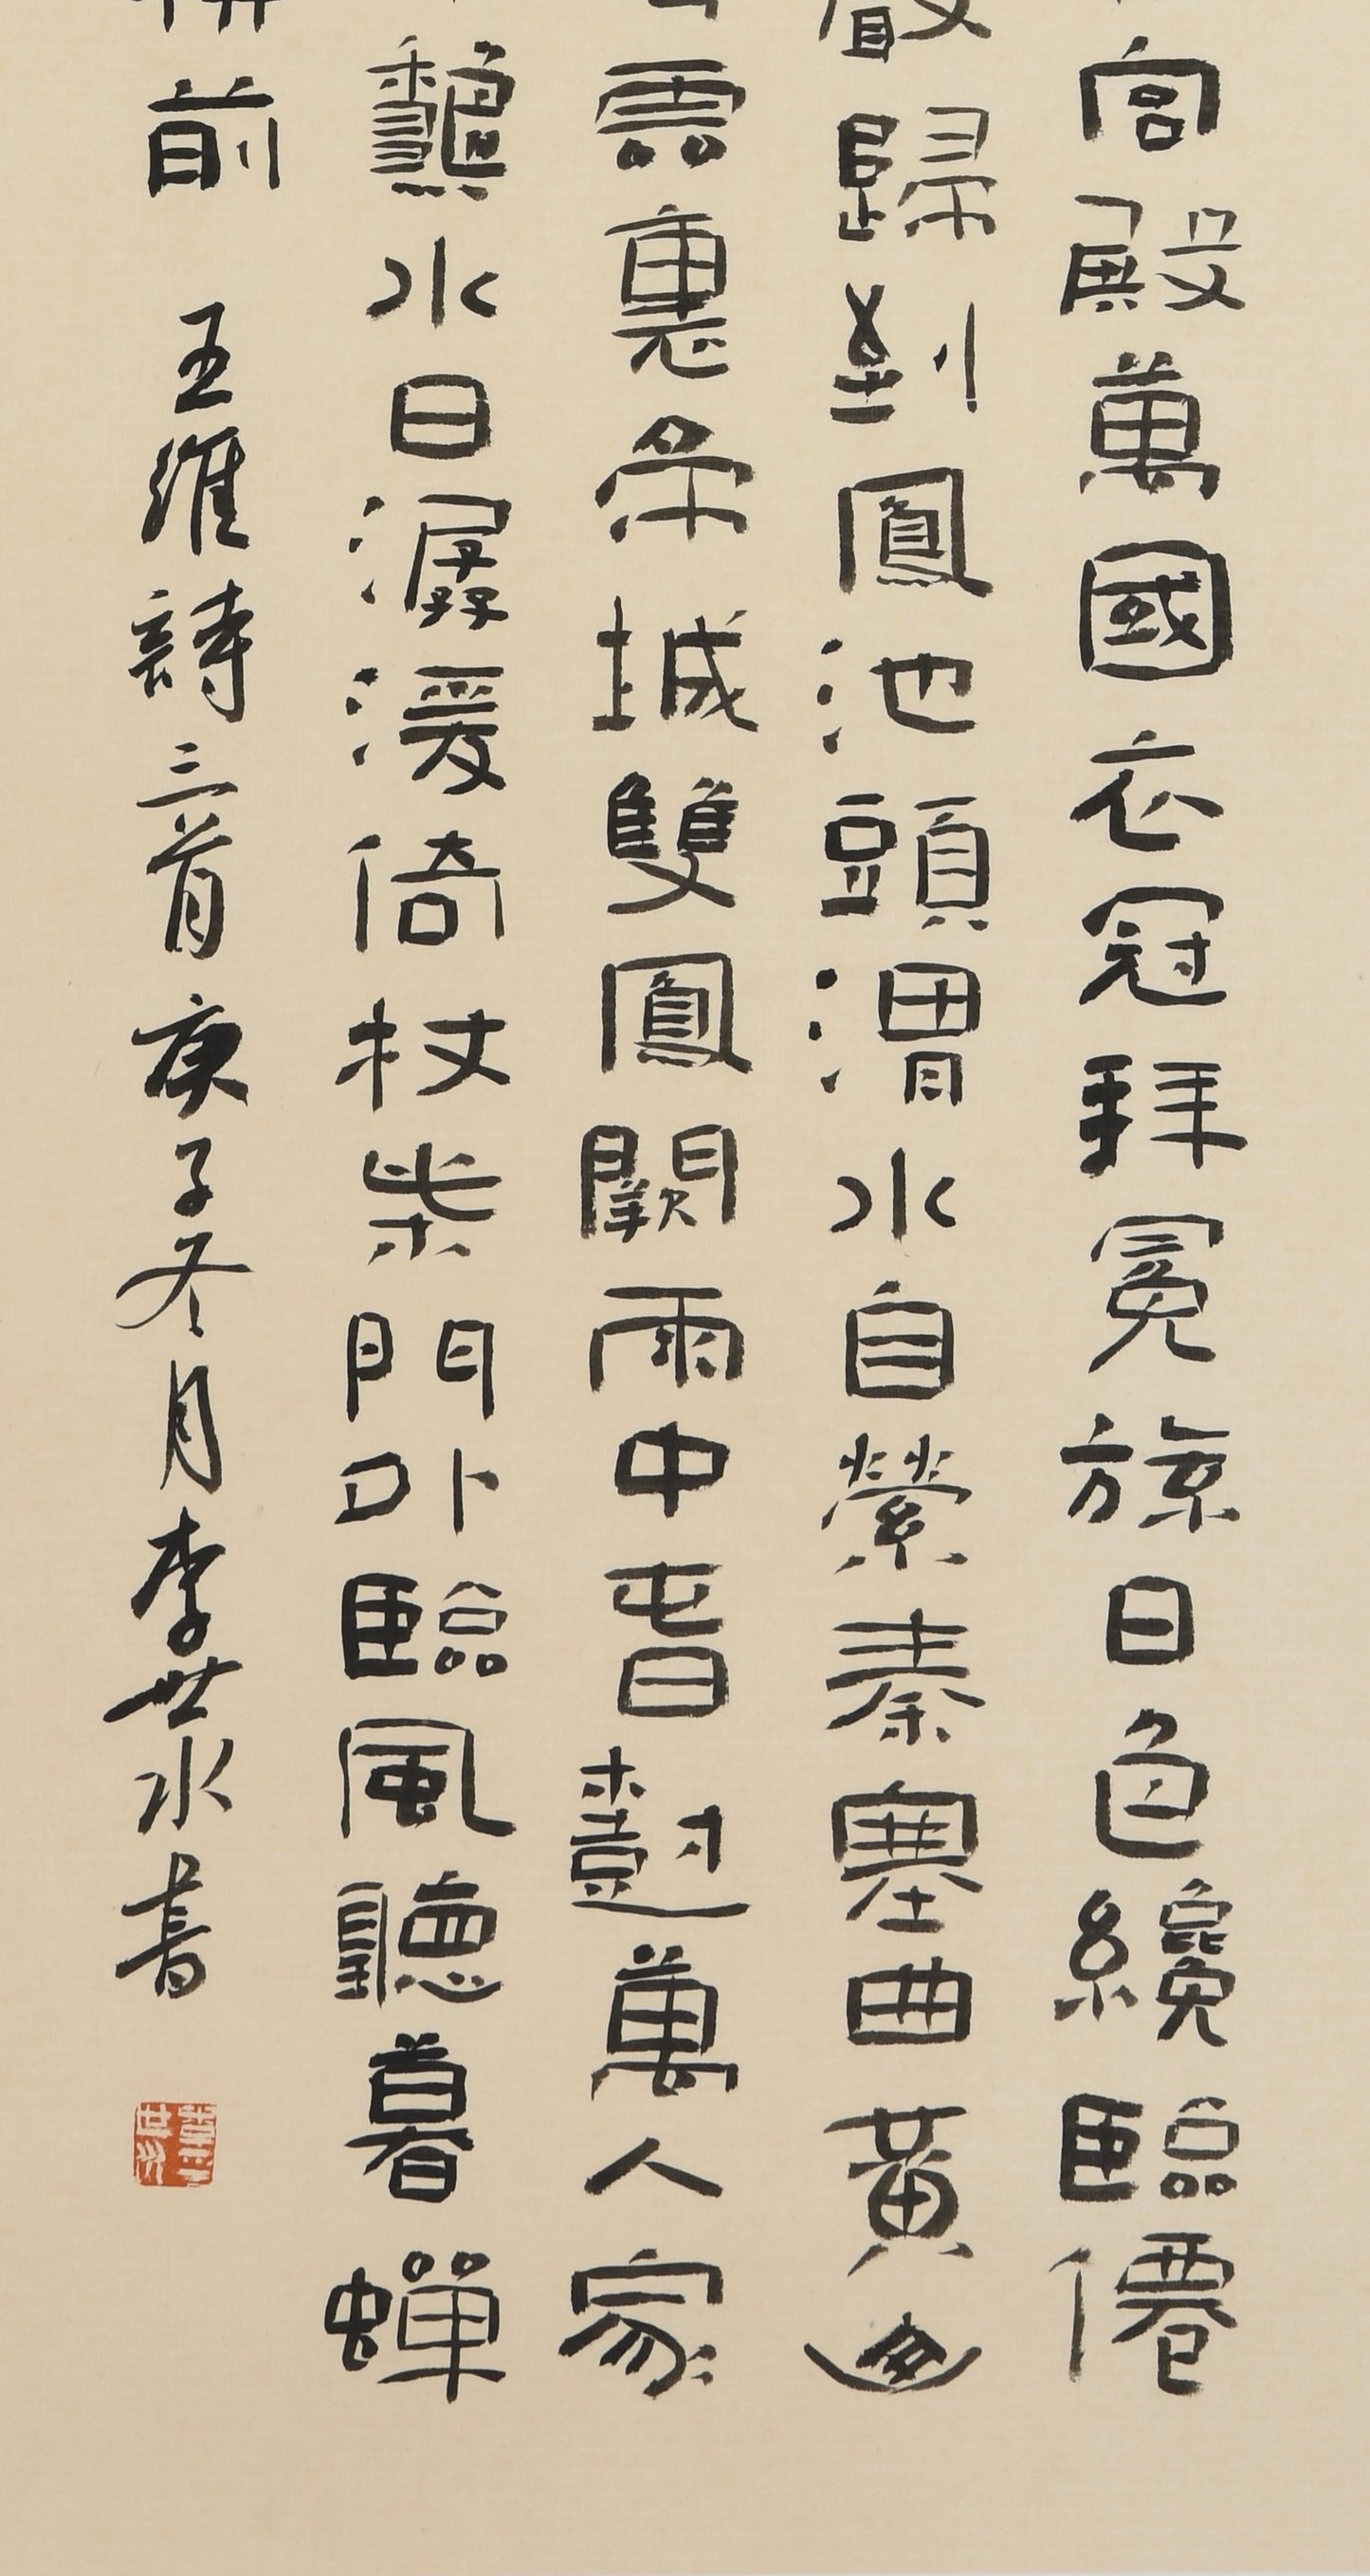 宮殿萬國衣冠拜冕旒日色纔臨僊
歸到鳳池頭渭水自縈秦塞曲黃山
雲裏帝城雙鳳闕雨中春樹萬人家
水日潺湲倚杖柴門外臨風聽暮蟬
前 王維詩三首 庚子冬月李世水書